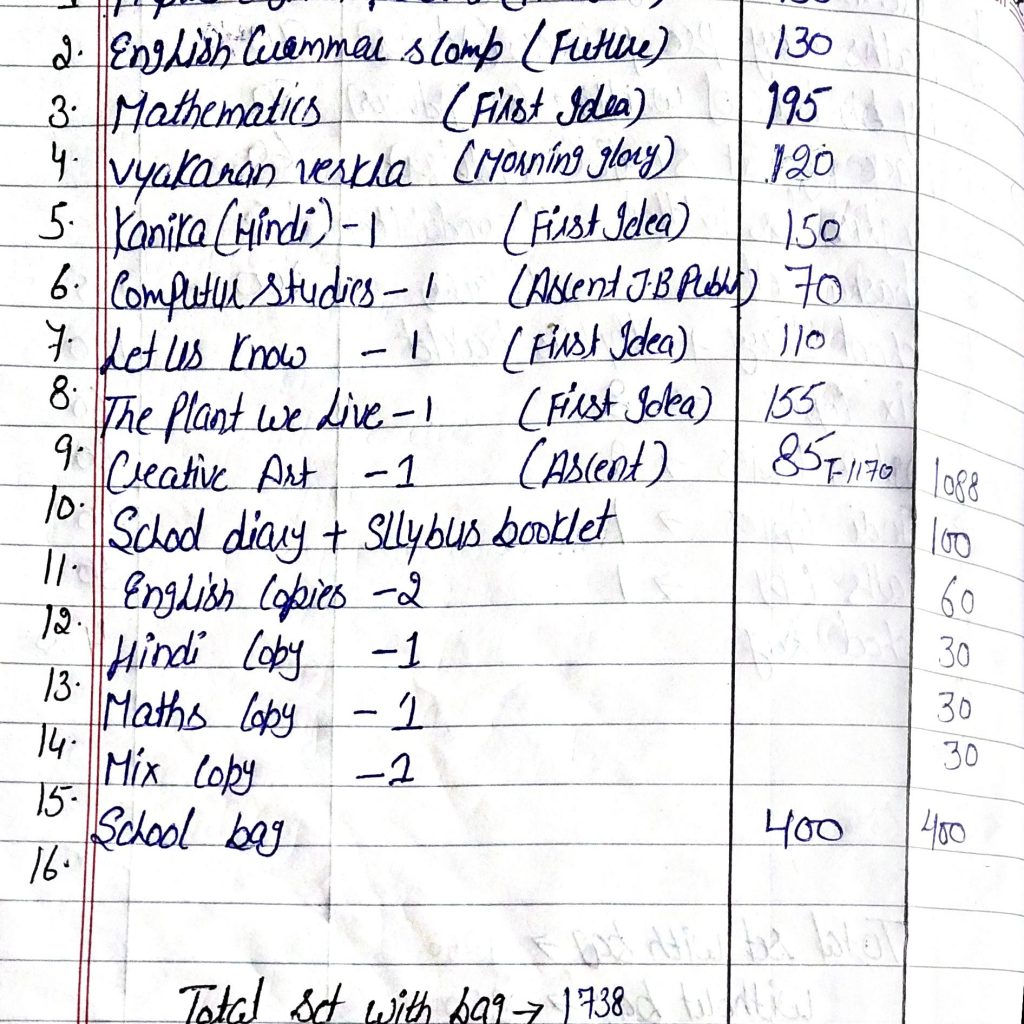 2. English Grammar stomp (Future) 130
3. Mathematics (First Idea) 195
4. Vyakaran verkha (Morning glory) 120
5. Kanika (Hindi) - 1 (First Idea) 150
6. Computer Studies - 1 (Ascent J.B Publi) 70
7. Let Us Know - 1 (First Idea) 110
8. The Plant We Live - 1 (First Idea) 155
9. Creative Art - 1 (Ascent) 85 T-1170 1088
10. School diary + Sllybus booklet 100
11. English Copies - 2 60
12. Hindi Copy - 1 30
13. Maths Copy - 1 30
14. Mix Copy - 1 30
15. School bag 400 400
16.
Total set with bag → 1738